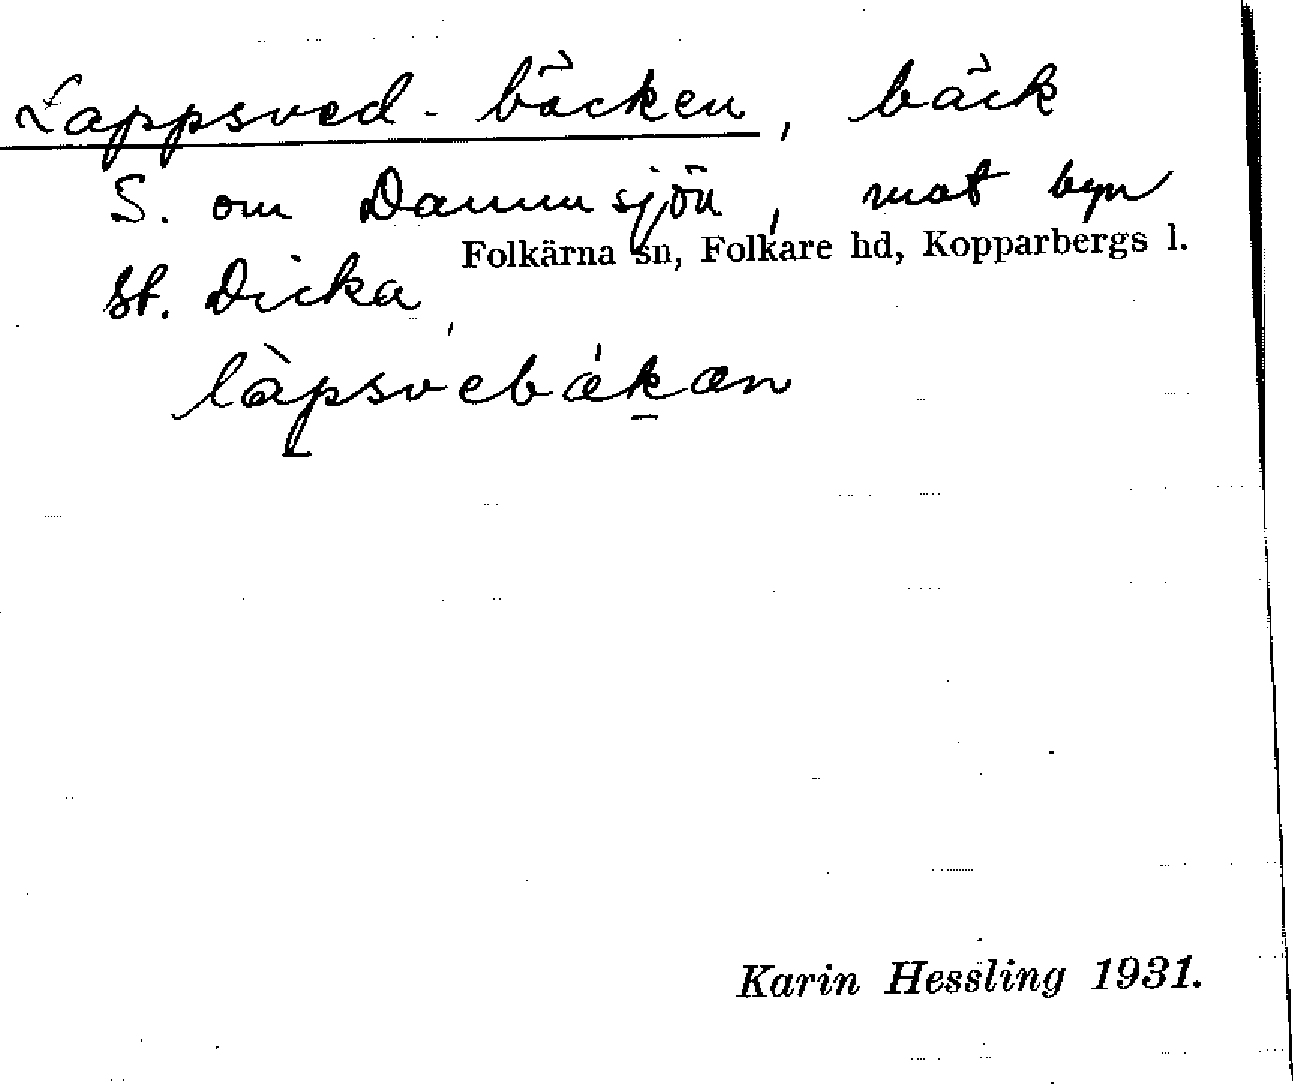 Lappsved-bäcken, bäck
S. om Dammsjön, mot byn
Folkärna sn, Folkare hd, Kopparbergs l.
St. Dicka
làpsvebǽkæn
Karin Hessling 1931.